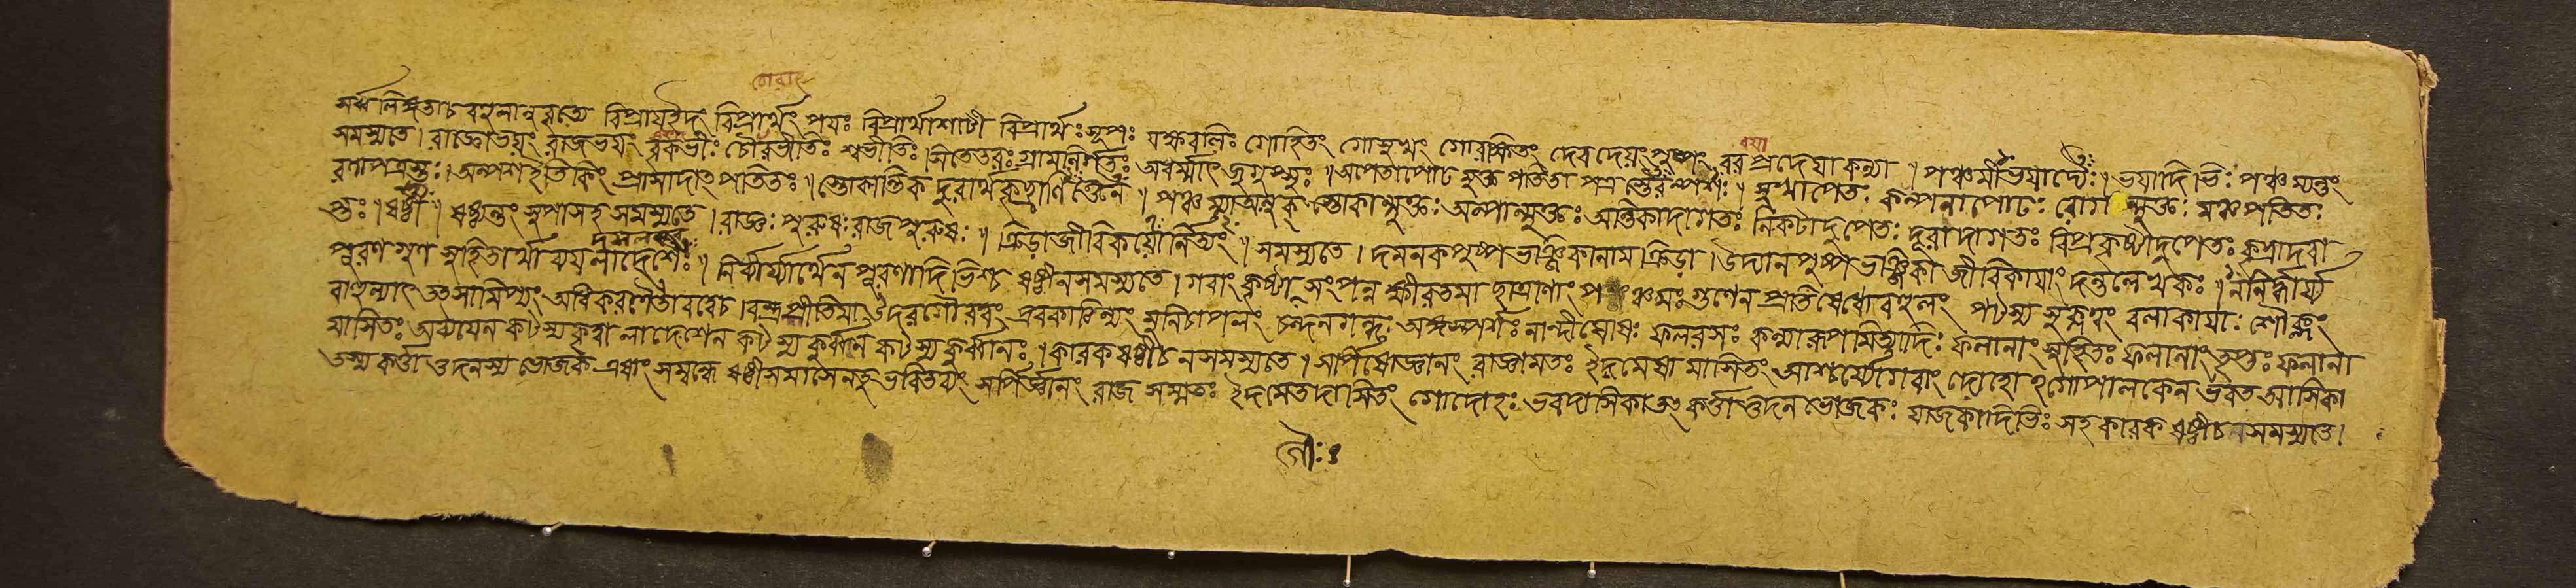 গোবাহ
সর্ব্বলিঙ্গতাচ বহুলানুবৃত্ত্যে বিপ্রাযইদং বিপ্রার্থং পযঃ বিপ্রার্থাশাটী বিপ্রার্থঃসূপঃ যক্ষবালিঃ গোহিতং গোসুখং গোরক্ষিতং দেবদেয়ং পুষ্পং বরপ্রদেযাকন্যা ॥ পঞ্চমীভযাদ্যৈঃ ॥ ভযাদিভিঃ পঞ্চম্যন্তং
সমস্যতে । রাজ্ঞোভয়ং রাজভযং বৃকভীঃ চৌরভীতিঃ শ্বভীতিঃ । সিতেতরঃ গ্রামনির্গতঃ অধর্ম্মাৎ জুগুপ্সুঃ ॥ অপেতাপোঢ মুক্ত পতিতা পত্রস্তৈরল্পশঃ ॥ সুখাপেতঃ কল্পনাপোঢঃ রোগান্মুক্তঃ মঞ্চপতিতঃ
রতাপত্রস্তঃ । অল্পশইতিকিং প্রাসাদাৎ পতিতঃ ॥ স্তোকান্তিক দুরার্থকৃচ্ছ্রাণি ক্তেন ॥ পঞ্চম্যাঅলুক্ স্তোকান্মুক্তঃ অল্পান্মুক্তঃ অন্তিকাদাগতঃ নিকটাদুপেতঃ দূরাদাগতঃ বিপ্রকৃষ্টাদুপেতঃ কৃচ্ছ্রাদবা
প্তঃ । ষষ্ঠী ॥ ষষ্ঠ্যন্তং সুপাসহ সমস্যতে । রাজ্ঞঃ পুরুষঃ রাজপুরুষঃ ॥ ক্রিড়াজীবিকযোর্নিত্যং ॥ সমস্যতে । দমনকপুষ্পভাঞ্জিকানাম ক্রিড়া । উদ্যানপুষ্পভাঞ্জিকা জীবিকাযাং দন্তলেখকঃ ॥ ননির্দ্ধার্য্য
পুরণ গুণ সুহিতার্থাব্যযলাদেশৈঃ ॥ নির্দ্ধার্য্যার্থেন পূরণাদিভিশ্চ ষষ্ঠীনসমস্যতে । গবাং কৃষ্ণা সংপন্ন ক্ষীরতমা ছাত্রাণাং পঞ্চমঃ গুণেন প্রতিষেধোবহুলং পটস্য শুক্লত্বং বলাকাযাঃ শৌক্ল্যং
বাহুল্যাৎ তৎসামিপ্যং অধিকরণৈতাবত্বেচ । বন্ধুপ্রীতিমা উদরগৌরবং এবকাঠিন্যং মুনিচাপলং চন্দনগন্ধঃ অঙ্গস্পর্শঃ নান্দীঘোষঃ ফলরসঃ কন্যারূপামিত্যাদিঃ ফলানাং সুহিতঃ ফলানাং তৃপ্তঃ ফলানা
মাসিতঃ অব্যযেন কটস্য কৃত্বা লাদেশেন কটস্য কুর্ব্বন্ কটস্যকুর্ব্বানঃ । কারকষষ্ঠীচ ন সমস্যতে । সর্পিষোজ্ঞানং রাজ্ঞামতঃ ইদমেষা মাসিতং আশ্চর্য্যোগবাং দোহো ঽগোপালকেন ভবত আসিকা
তস্য কর্ত্তা ওদনস্য ভোজকঃ এষাং সম্বন্ধে ষষ্ঠীসমাসেনতু ভবিতব্যং সর্পির্জ্ঞানং রাজ সম্মতঃ ইদমেতদাসিতং গোদোহঃ ভবদাসিকা তৎকর্ত্তা ওদনভোজকঃ যাজকাদিভিঃ সহ কারক ষষ্ঠীচ ন সমস্যতে ।
গৌঃ